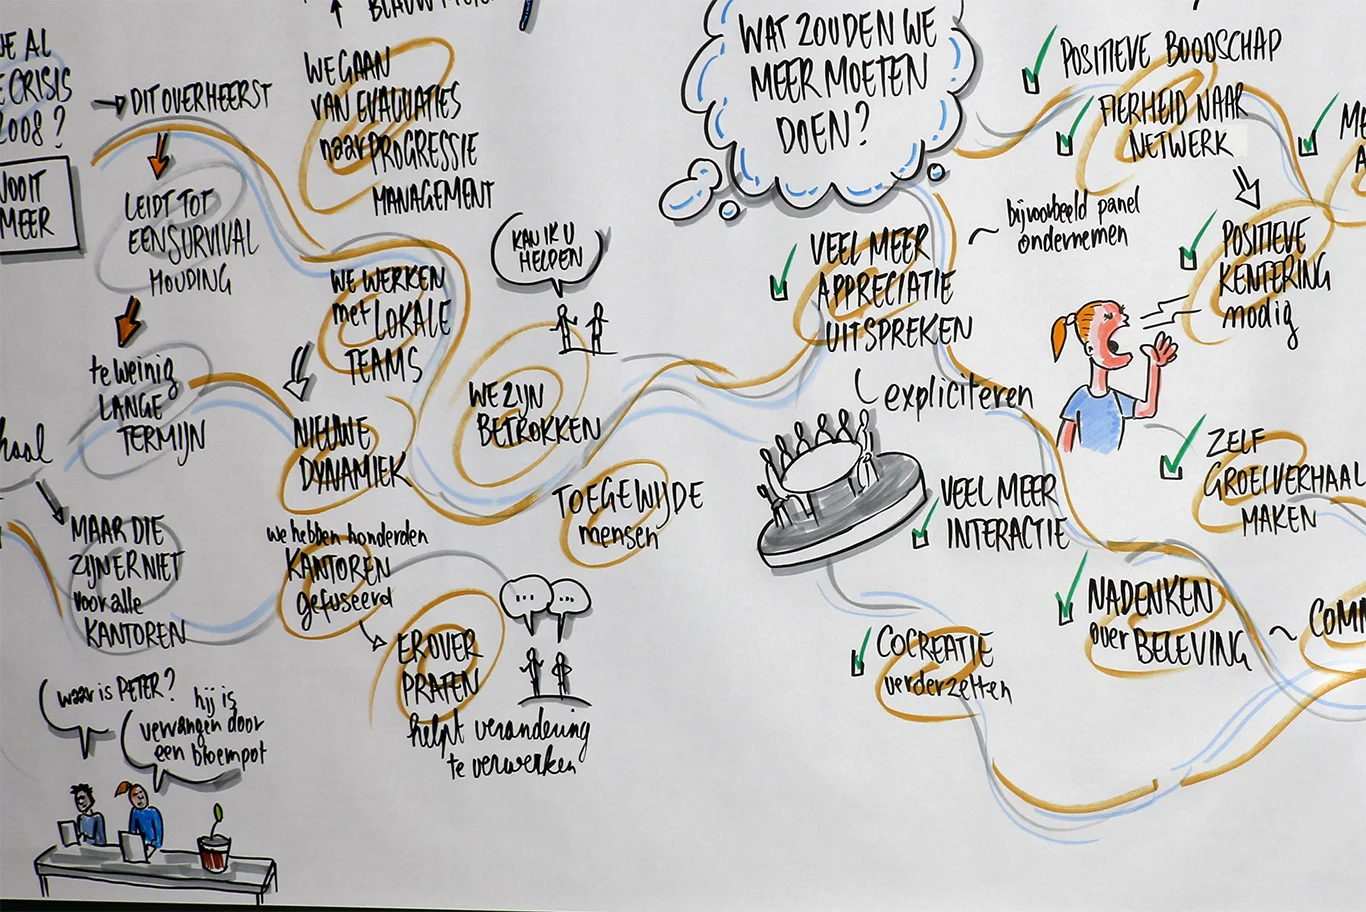 BLAUW
JE AL
CRISIS
2008?
NOOIT
MEER
DIT OVERHEERST
LEIDT TOT
EEN SURVIVAL
HOUDING
te weinig
LANGE
TERMIJN
MAAR DIE
ZIJN ER NIET
voor alle
KANTOREN
waar is PETER?
hij is
vervangen door
een bloempot
WE GAAN
VAN EVALUATIES
naar PROGRESSIE
MANAGEMENT
WE WERKEN
met LOKALE
TEAMS
NIEUWE
DYNAMIEK
we hebben honderden
KANTOREN
gefuseerd
ER OVER
PRATEN
helpt verandering
te verwerken
KAN IK U
HELPEN
WE ZIJN
BETROKKEN
TOEGEWIJDE
mensen
WAT ZOUDEN WE
MEER MOETEN
DOEN?
VEEL MEER
APPRECIATIE
UITSPREKEN
expliciteren
bijvoorbeeld panel
ondernemen
VEEL MEER
INTERACTIE
COCREATIE
verderzetten
POSITIEVE BOODSCHAP
FIERHEID NAAR
NETWERK
POSITIEVE
KENTERING
nodig
ZELF
GROEIVERHAAL
MAKEN
NADENKEN
over BELEVING
COMM